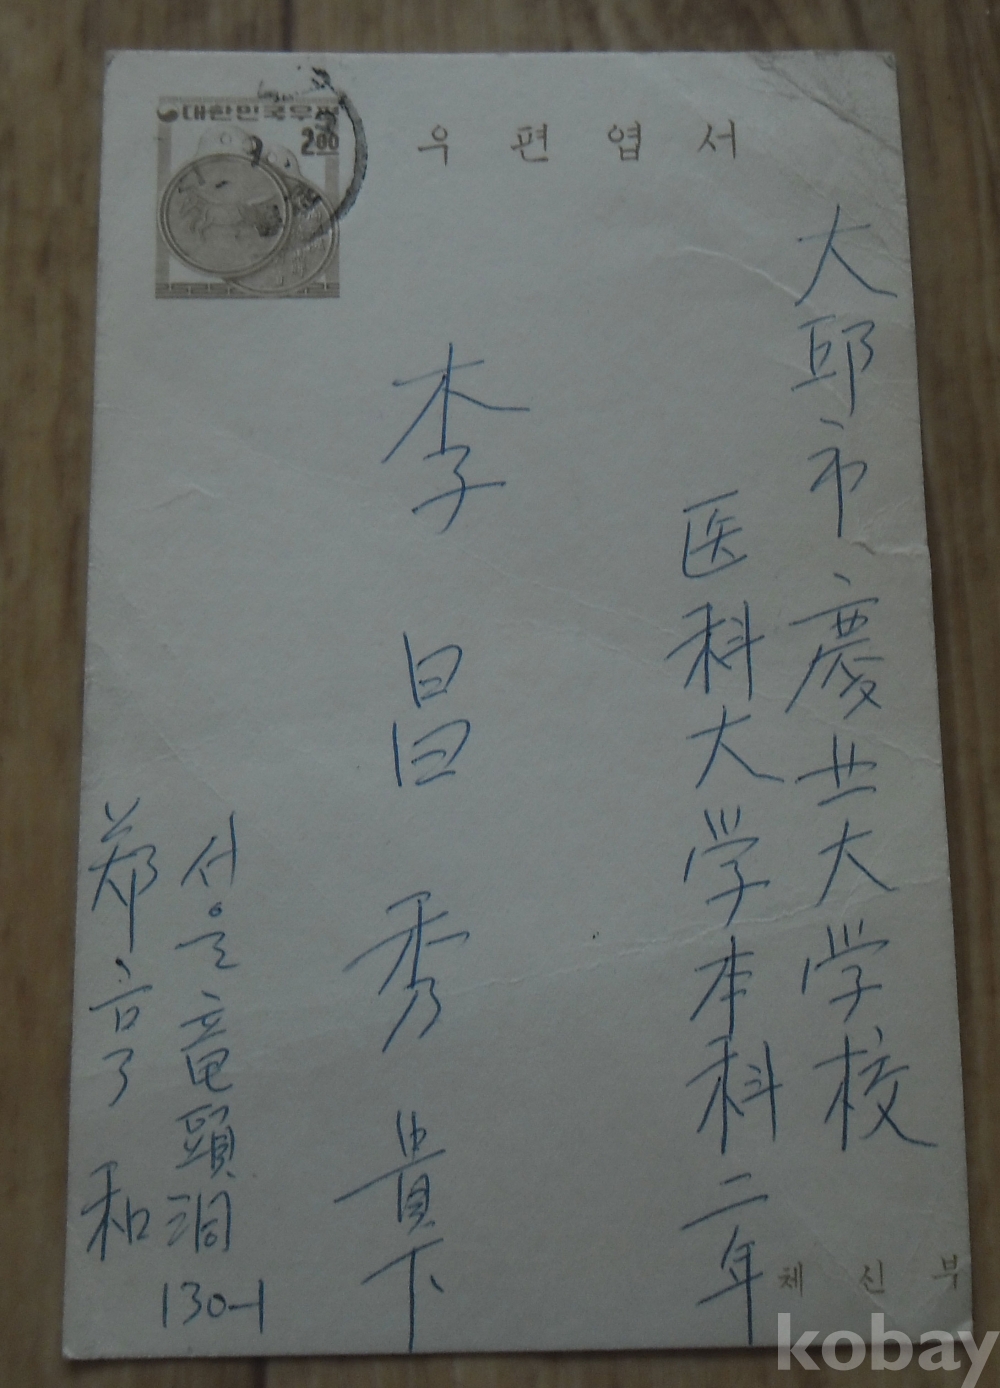 대한민국우표
2.00
우편엽서
大邱市 慶北大学校
医科大学本科二年
李昌秀 貴下
서울 竜頭洞
130-1
鄭亨和
체신부
kobay